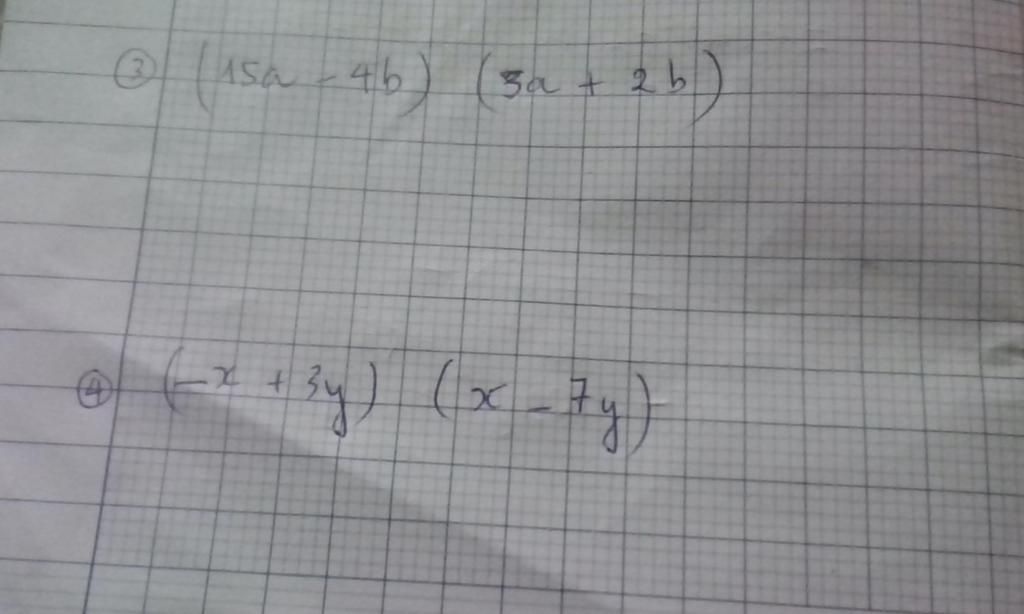 ③ (15a - 4b) (3a + 2b)
④ (-x + 3y) (x - 7y)